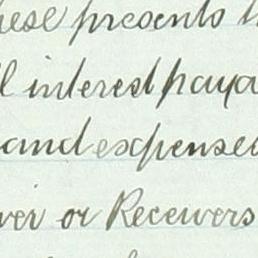 hese presents
l interest paya
and expenses
ver or Receivers